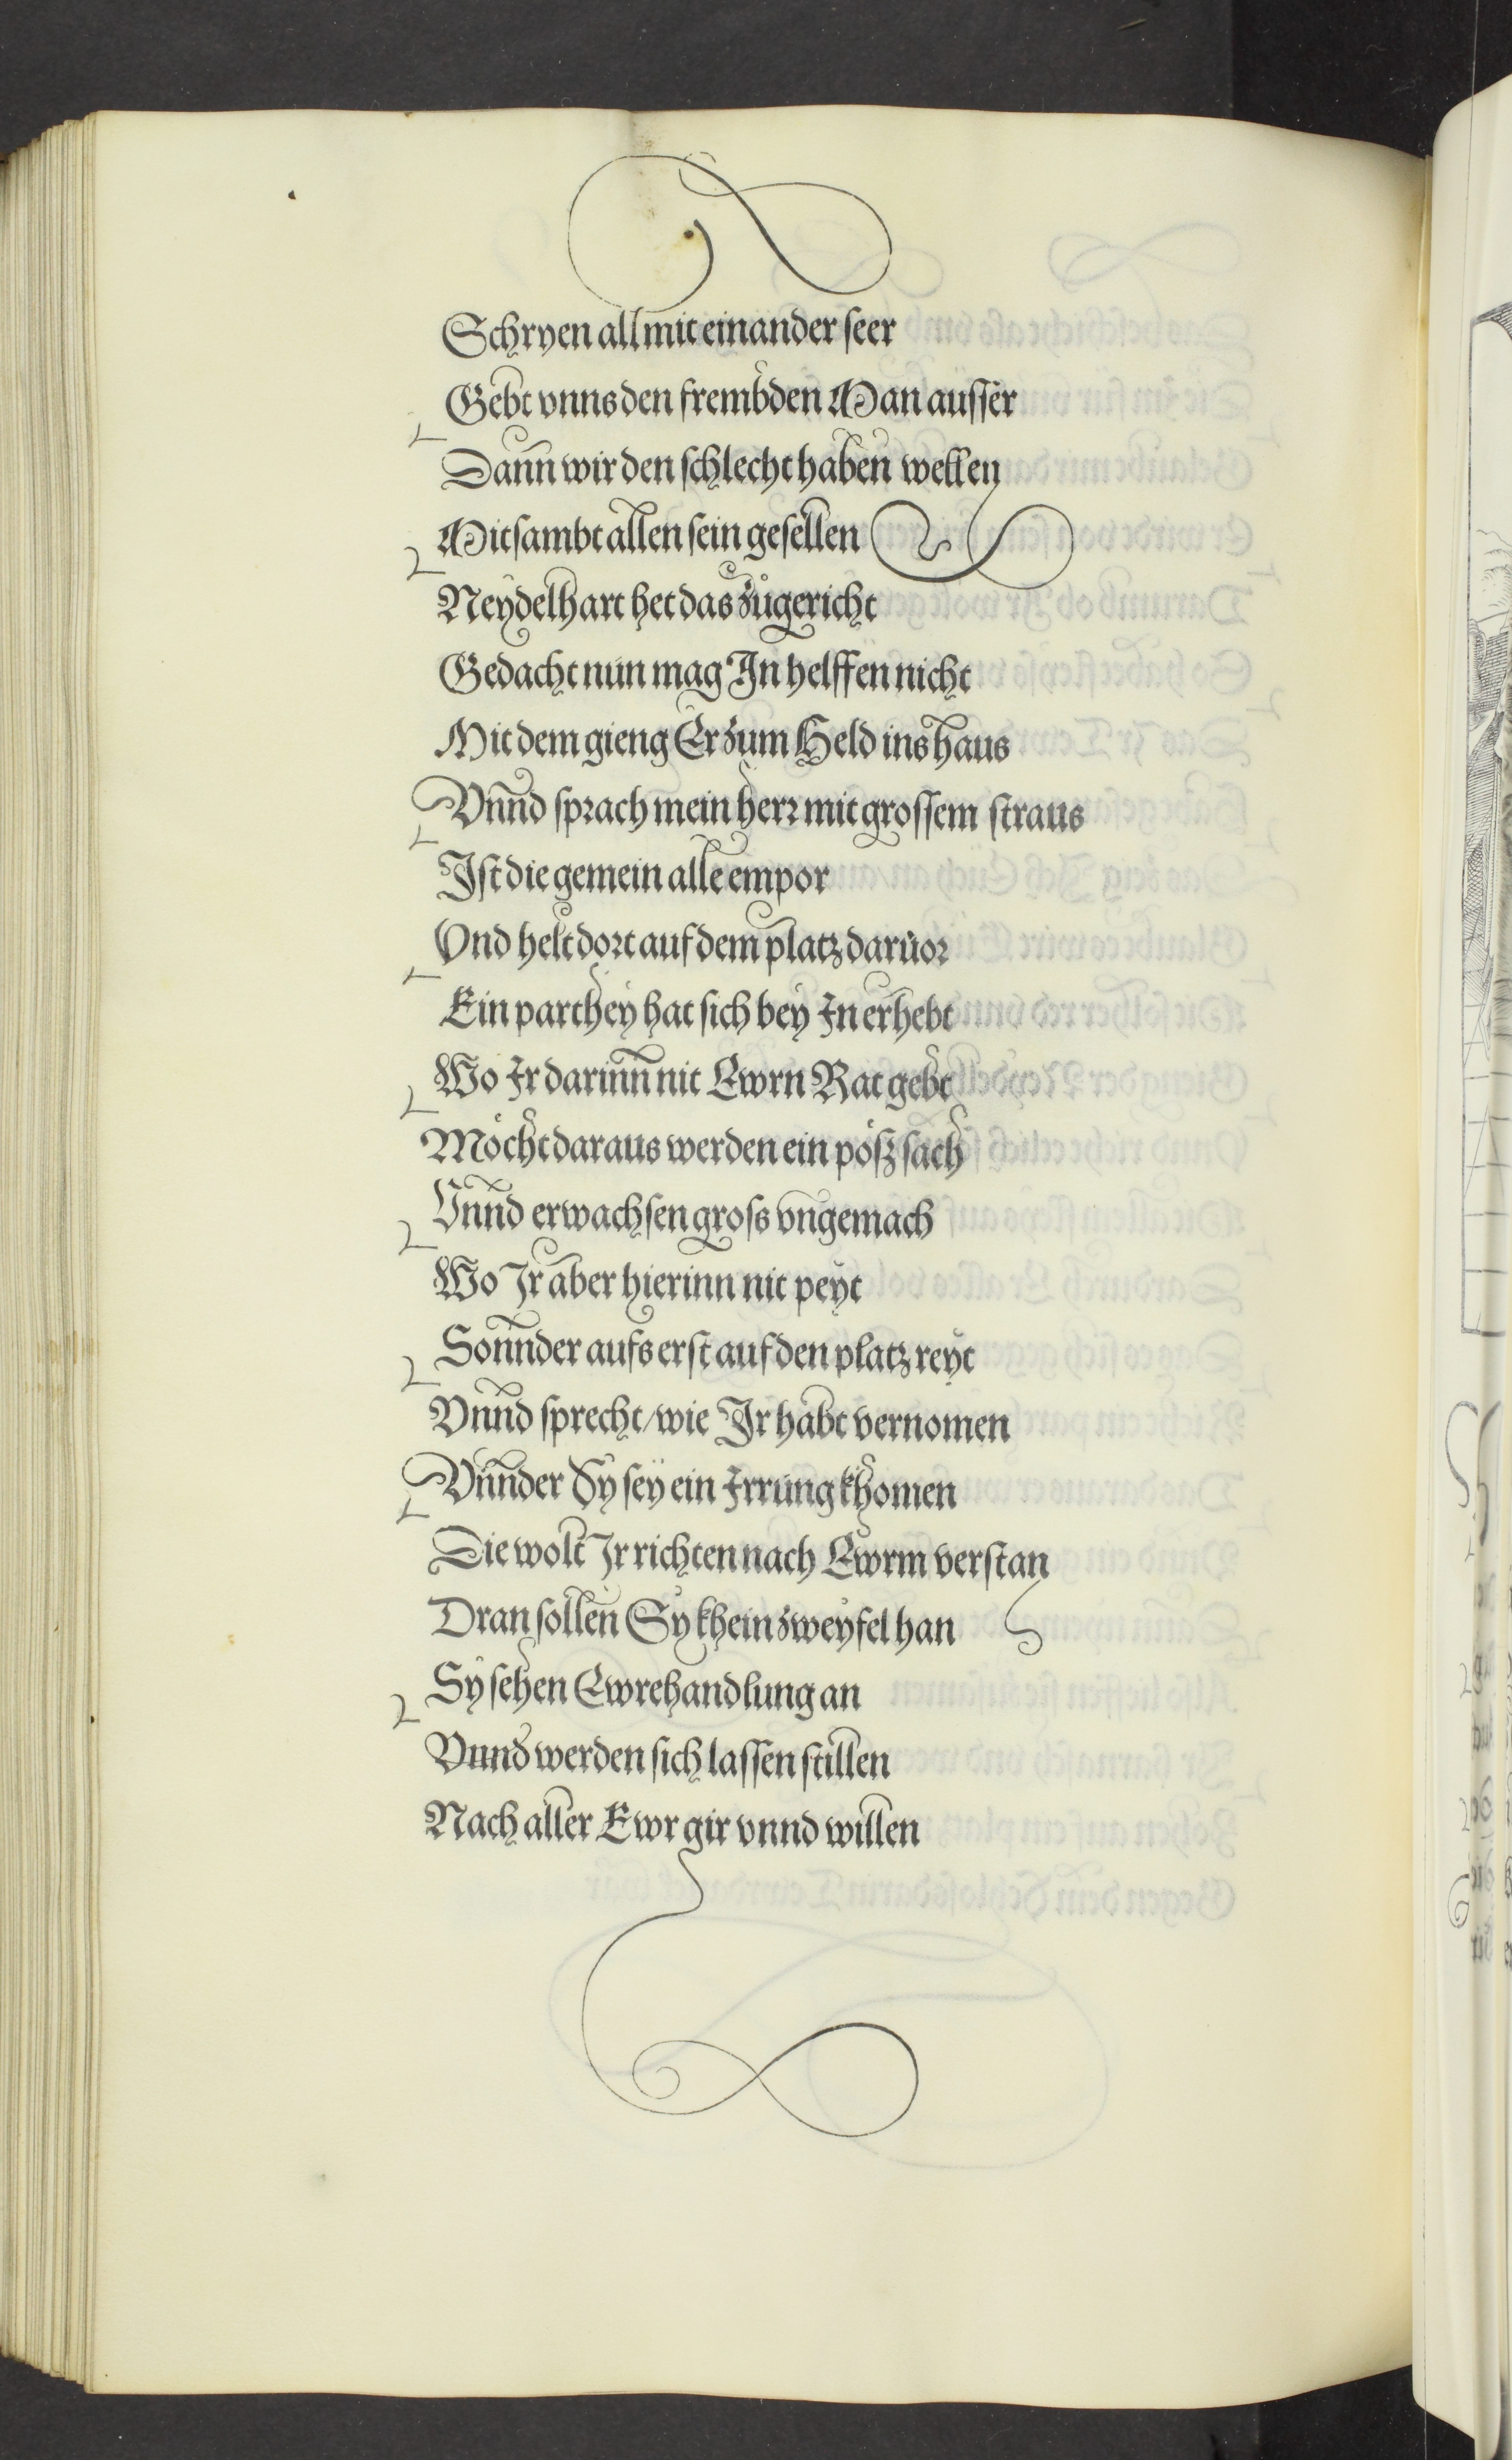 Schryen all mit einander seer
Gebt vnns den frembden Man ausser
Dann wir den schlecht haben wellen
Mitsambt allen sein gesellen
Neydelhart het das zugericht
Gedacht nun mag In helffen nicht
Mit dem gieng Er zum Held ins haus
Vnnd sprach mein herr mit grossem straus
Ist die gemein alle empor
Vnd helt dort auf dem platz daruor
Ein parthey hat sich bey In erhebt
Wo Ir darinn nit Ewrn Rat gebt
Möcht daraus werden ein pösz sach
Vnnd erwachsen gross vngemach
Wo Ir aber hierinn nit peyt
Sonnder aufs erst auf den platz reyt
Vnnd sprecht/wie Ir habt vernomen
Vnnder Sy sey ein Irrung khomen
Die wolt Ir richten nach Ewrm verstan
Dran sollen Sy khein zweyfel han
Sy sehen Ewre handlung an
Vnnd werden sich lassen stillen
Nach aller Ewr gir vnnd willen